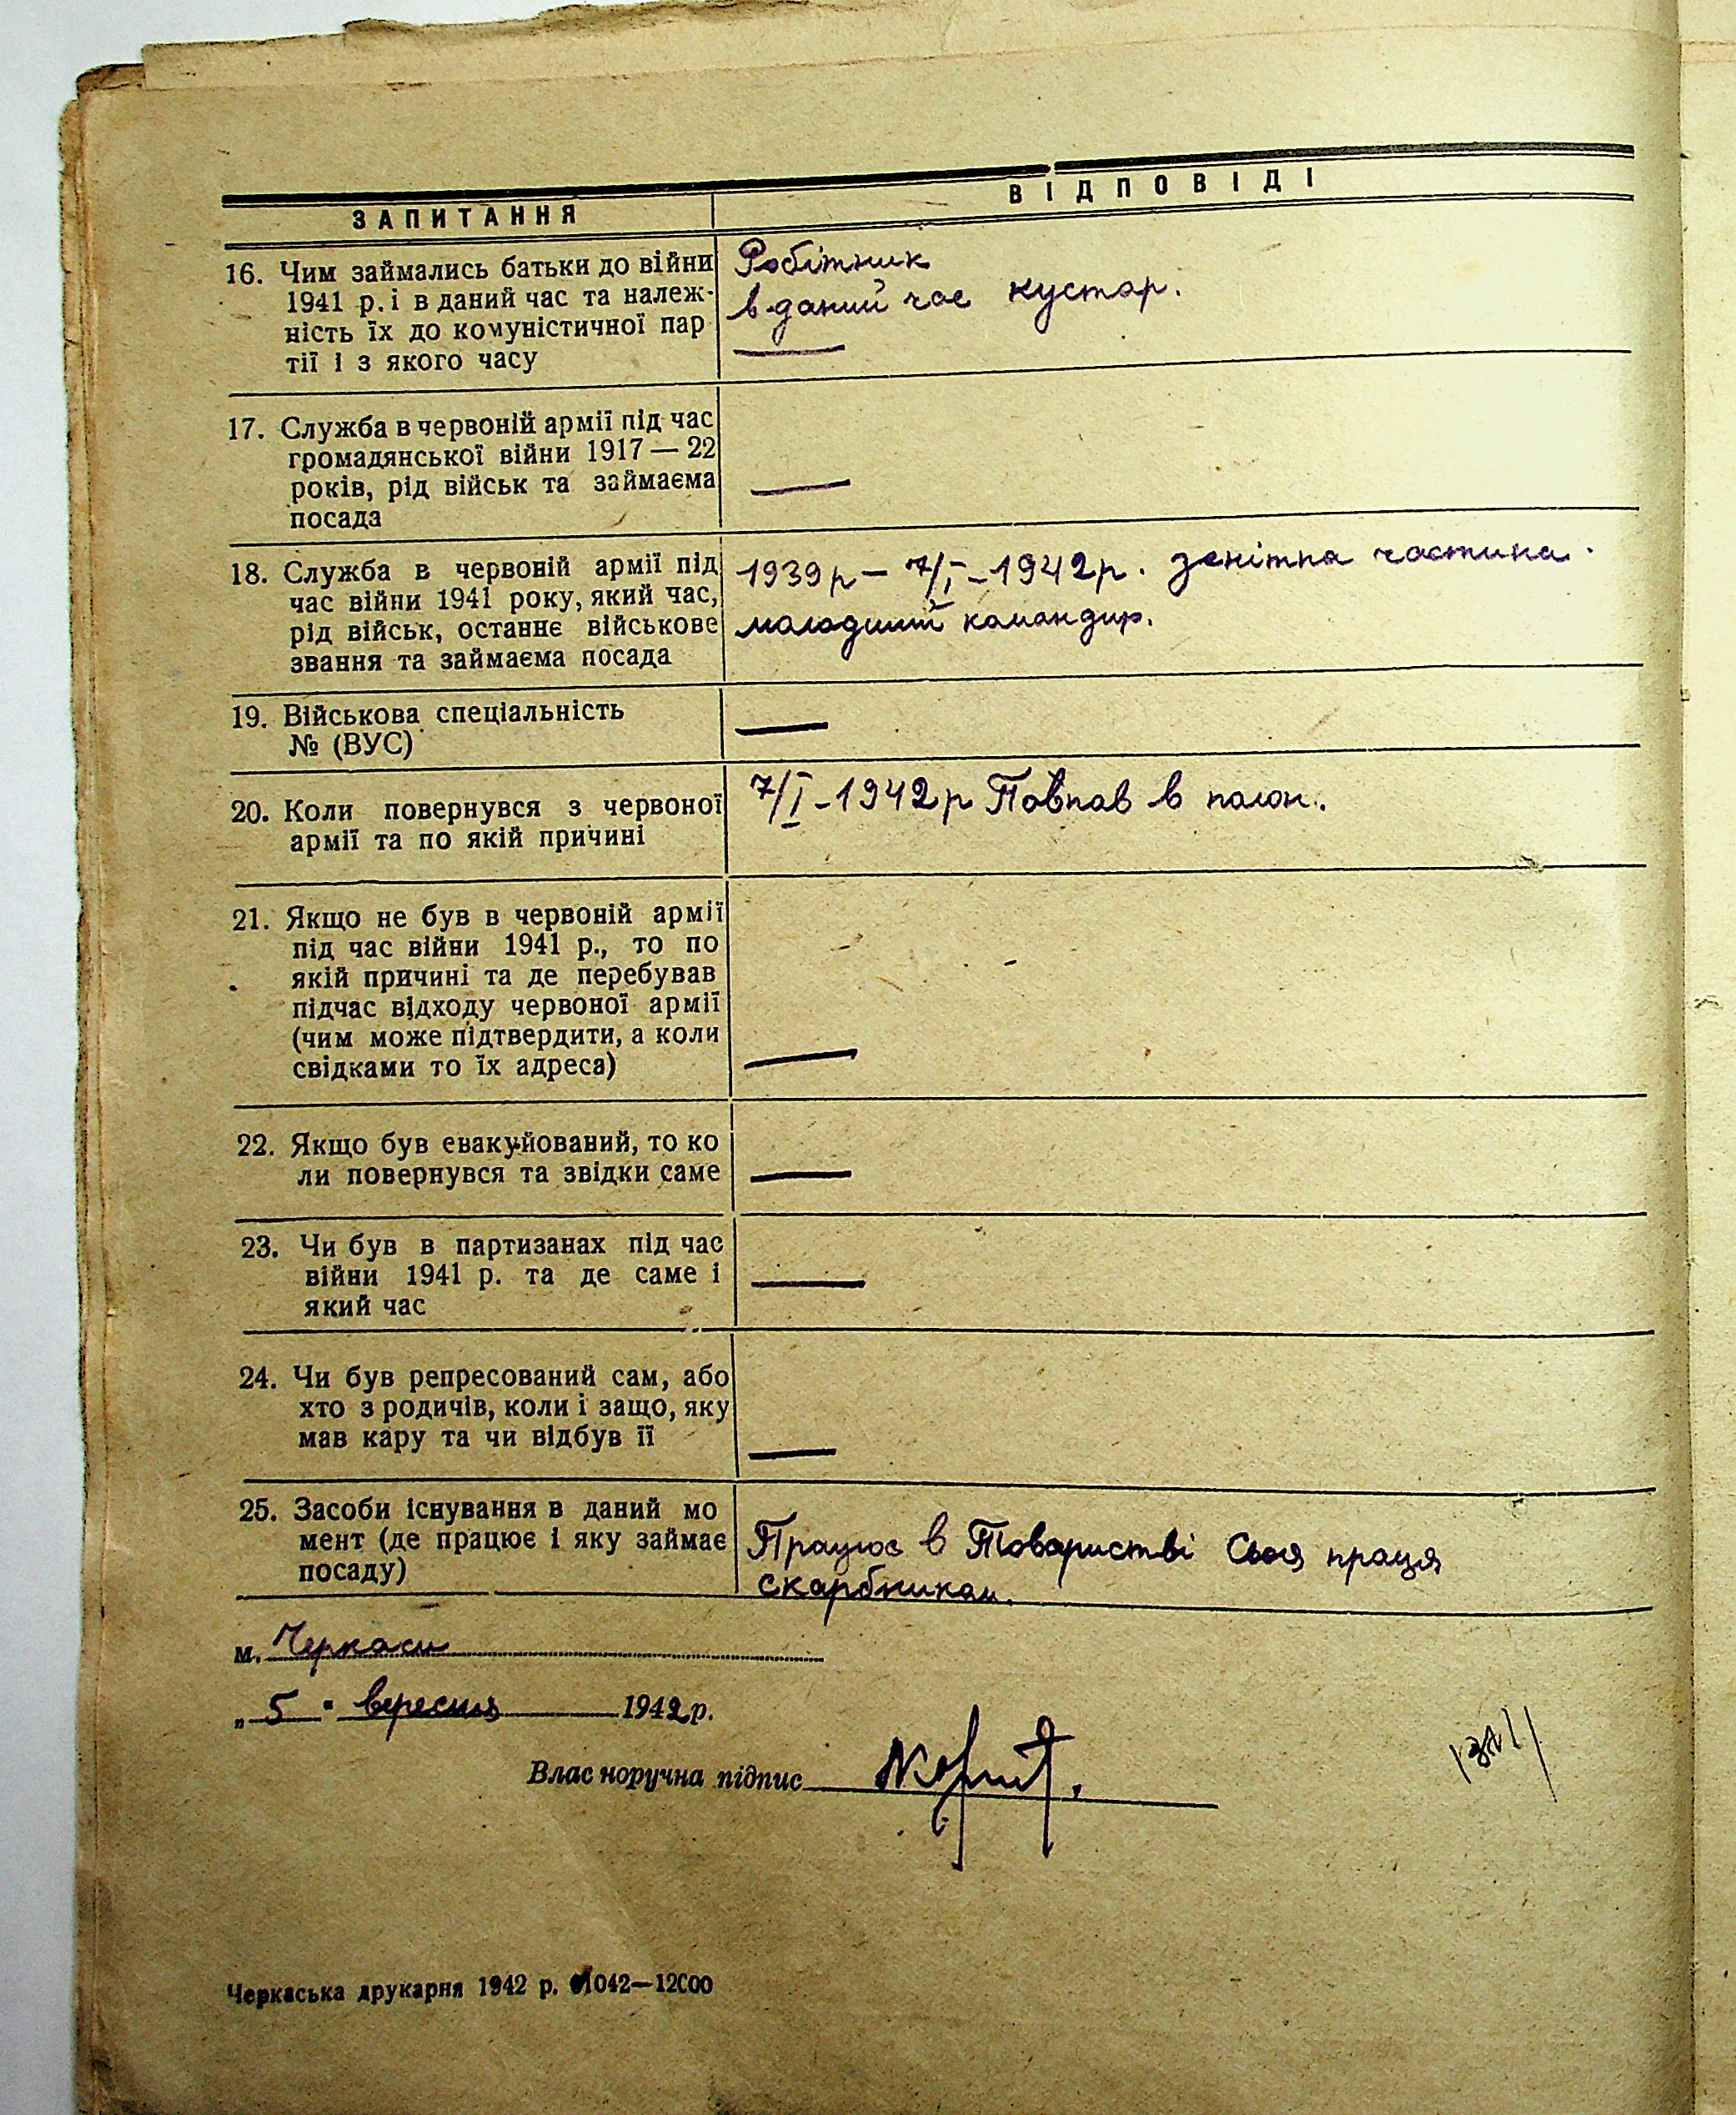 ЗАПИТАННЯ
ВІДПОВІДІ
16. Чим займались батьки до війни
1941 р. і в даний час та належ-
ність їх до комуністичної пар
тії і з якого часу
Робітник
в даний час кустар.
17. Служба в червоній армії під час
громадянської війни 1917 — 22
років, рід військ та займаєма
посада
18. Служба в червоній армії під
час війни 1941 року, який час,
рід військ, останнє військове
звання та займаєма посада
1939р – 7/I – 1942р. зенітна частина.
молодший командир.
19. Військова спеціальність
№ (ВУС)
20. Коли повернувся з червоної
армії та по якій причині
7/I – 1942р Повпав в полон.
21. Якщо не був в червоній армії
під час війни 1941 р., то по
якій причині та де перебував
підчас відходу червоної армії
(чим може підтвердити, а коли
свідками то їх адреса)
22. Якщо був евакуйований, то ко
ли повернувся та звідки саме
23. Чи був в партизанах під час
війни 1941 р. та де саме і
який час
24. Чи був репресований сам, або
хто з родичів, коли і защо, яку
мав кару та чи відбув її
25. Засоби існування в даний мо
мент (де працює і яку займає
посаду)
Працює в Товаристві Своя праця
скарбником.
м. Черкаси
„ 5 " вересня 1942 р.
Влас норучна підпис
Черкаська друкарня 1942 р. 1042—12000